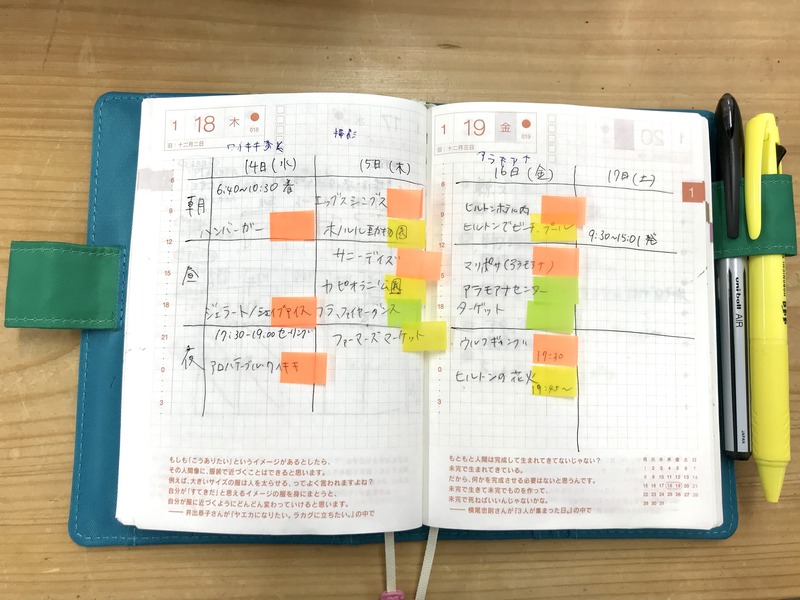 1 18 木 018
旧:十二月二日
ワイキキ
14日(水) 15日(木)
朝 6:40~10:30 着
エッグスシングス
ハンバーガー
ホノルル動物園
昼
サニーデイズ
カピオラニ公園
ジェラート/シェイブアイス フラ、ファイヤーダンス
夜 17:30-19:00 セーリング
ファーマーズマーケット
アロハテーブルワイキキ
6
9
12
15
18
21
0
3
もしも「こうありたい」というイメージがあるとしたら、
その人間像に、服装で近づくことはできると思います。
例えば、大きいサイズの服は人を太らせる、ってよく言われますよね?
自分が「すてきだ」と思えるイメージの服を身にまとうと、
自分が服に近づくようにどんどん変わっていけると思います。
—— 昇出恭子さんが『ヤエカになりたい。ラカグに立ちたい。』の中で
1 19 金 019
旧:十二月三日
アラモアナ
16日(金) 17日(土)
ヒルトンホテル内
ヒルトンでビーチ、プール
9:30~15:01 発
マリポサ(アラモアナ)
アラモアナセンター
ターゲット
ウルフギャング
17:30
ヒルトンの花火
19:45~
6
9
12
15
18
21
0
3
もともと人間は完成して生まれてきてないじゃない?
未完で生まれてきている。
だから、何かを完成させる必要はないと思うんです。
未完で生きて未完でものを作って、
未完で死ねばいいんじゃないかな。
—— 横尾忠則さんが『3人が集まった日。』の中で
1
20
uni-ball AIR
JAPAN